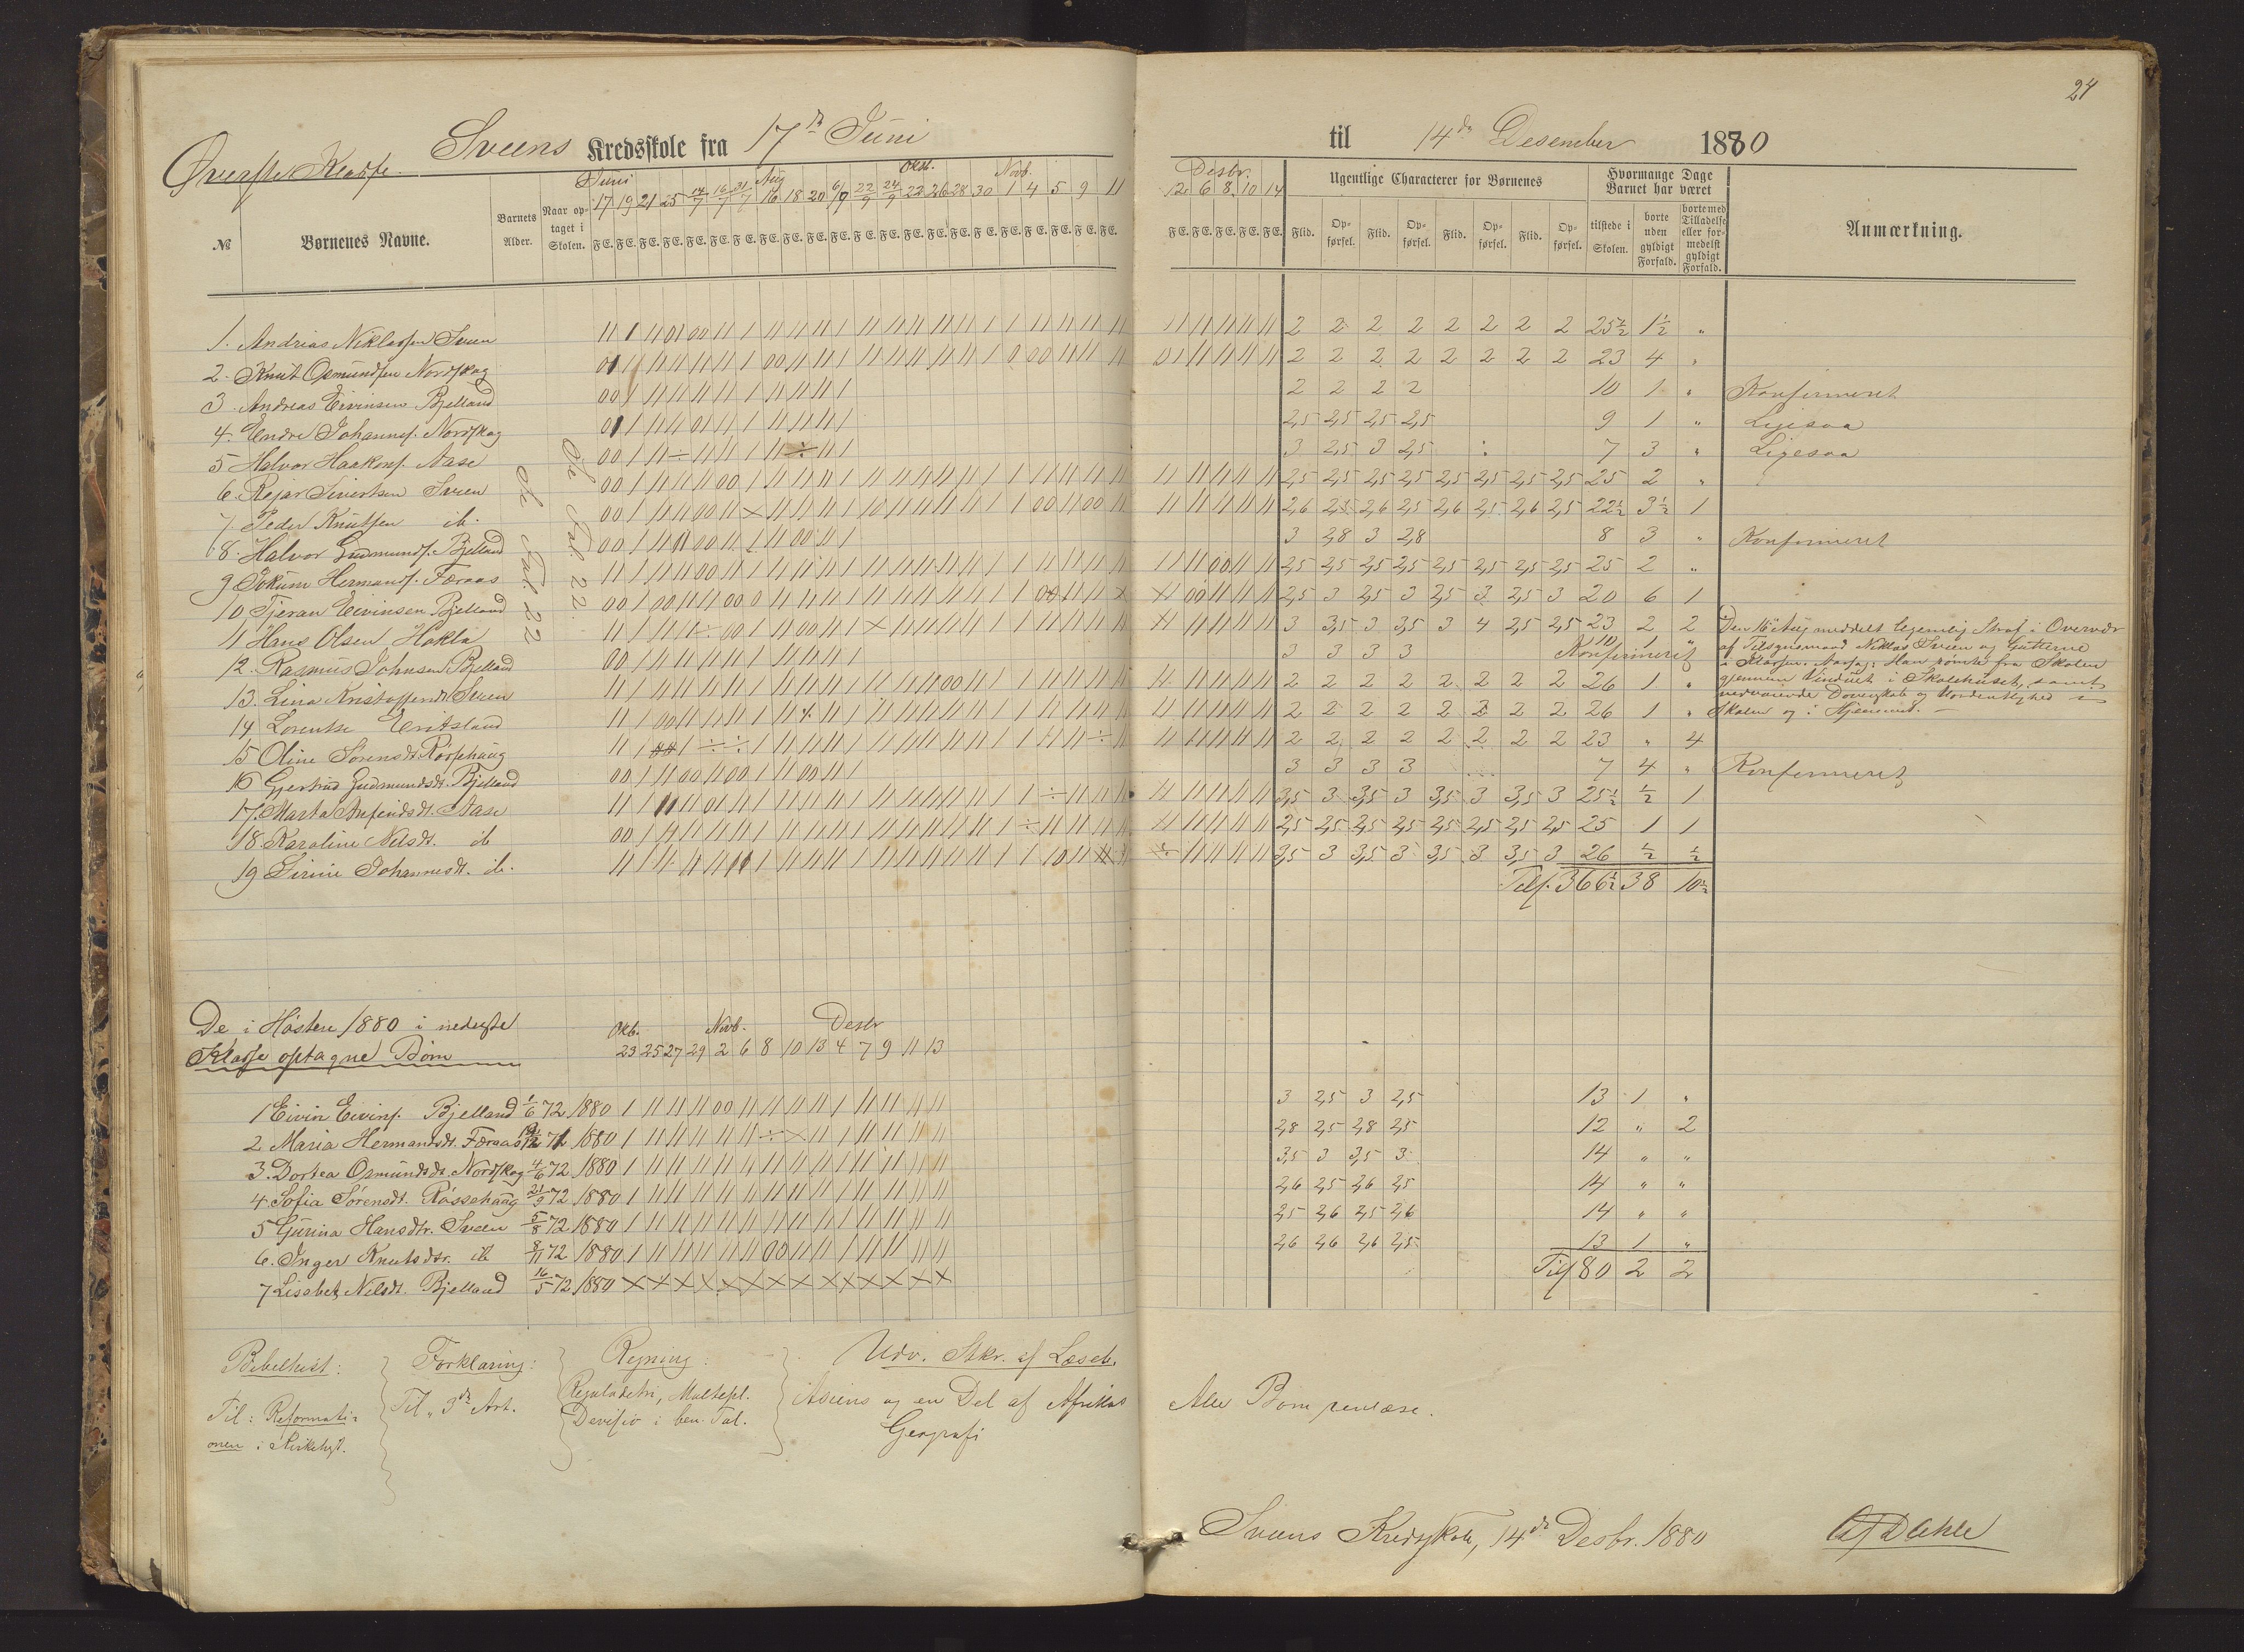 24
Sveens Kredsskole fra 17de Juni til 14de Desember 1880
Øverste Klasse.
№ Børnenes Navne. Barnets Alder. Naar optaget i Skolen. Juni 17 19 21 25 14/7 16/7 31/7 Aug 16 18 20 6/9 22/9 24/9 Oktb. 22 26 28 30 Novb. 1 4 5 9 11 Desbr. 2 6 8 10 14
Ugentlige Characterer for Børnenes Flid. Opførsel. Flid. Opførsel. Flid. Opførsel. Flid. Opførsel.
Hvormange Dage Barnet har været tilstede i Skolen. borte uden gyldigt Forfald. borte med Tilladelse eller formedelst gyldigt Forfald. Anmærkning.
Se Side 22 Se Side 22.
1. Andrias Niklassen Sveen 2 2 2 2 2 2 2 2 25½ 1½ "
2. Knut Osmundsen Nordskog 2 2 2 2 2 2 2 2 23 4 "
3. Andreas Eivinsen Bjelland 2 2 2 2 10 1 " Konfirmeret
4. Endre Johannes. Nordskog 2,5 2,5 2,5 2,5 9 1 " Ligesaa
5 Halvor Haakons. Aase 3 2,5 3 2,5 7 3 " Ligesaa
6. Rejar Sivertsen Sveen 2,5 2,5 2,5 2,5 2,5 2,5 2,5 2,5 25 2 "
7. Peder Knutsen ib. 2,6 2,5 2,6 2,5 2,6 2,5 2,6 2,5 22½ 3½ 1
8. Halvor Gudmunds. Bjelland 3 2,8 3 2,8 8 3 " Konfirmeret
9 Jokum Hermands. Færaas 2,5 2,5 2,5 2,5 2,5 2,5 2,5 2,5 25 2 "
10. Tjeran Eivinsen Bjelland 2,5 3 2,5 3 2,5 3 2,5 3 20 6 1
11 Hans Olsen Hakla 3 3,5 3 3,5 3 4 2,5 2,5 23 2 2 Den 16de Aug meddelt legemlig Straf i Overvær
12. Rasmus Johnsen Bjelland 3 3 3 3 Konfirmeret 10 1 " af Tilsynsmand Niklas Sveen og Gutterne
i Klassen. Aarsag: Han rømte fra Skolen
13. Lina Kristoffersdt. Sveen 2 2 2 2 2 2 2 2 26 1 " gjennem Vinduet i Skolehuset, samt
vedvarende Dovenskab og Uordentlighed i
14 Lorentse Eritsland 2 2 2 2 2 2 2 2 26 1 " Skolen og i Hjemmet.
15 Oline Sørensdt. Røssehaug 2 2 2 2 2 2 2 2 23 " 4
16 Gjertrud Gudmundsdt. Bjelland 3 3 3 3 7 4 " Konfirmeret
17. Marta Anfinsdt. Aase 3,5 3 3,5 3 3,5 3 3,5 3 25½ ½ 1
18. Karoline Nilsdt. ib 2,5 2,5 2,5 2,5 2,5 2,5 2,5 2,5 25 1 1
19 Sirine Johannesdt. ib. 3,5 3 3,5 3 3,5 3 3,5 3 26 ½ ½
Tils. 366½ 38 10½
De i Høsten 1880 i nederste
Klasse optagne Børn
Oktb. 23 25 27 29 Novb. 2 6 8 10 13 Desbr 4 7 9 11 13
1 Eivin Eivins. Bjelland 1/6 72 1880 3 2,5 3 2,5 13 1 "
2 Maria Hermandsdt. Færaas 71 1880 2,8 2,5 2,8 2,5 12 " 2
3. Dortea Osmundsdt. Nordskog 4/6 72 1880 3,5 3 3,5 3 14 " "
4. Sofia Sørensdt. Røssehaug 21/9 72 1880 2,6 2,5 2,6 2,5 14 " "
5 Gurina Hansdtr. Sveen 5/8 72 1880 2,5 2,6 2,5 2,6 14 " "
6. Inger Knutsdtr. ib 8/11 72 1880 2,6 2,6 2,6 2,5 13 1 "
7 Lisabet Nilsdt. Bjelland 16/5 72 1880
Tils 80 2 2
Bibelhist:
Til: Reformati-
onen i Kirkehist.
Forklaring:
Til "3de Art.
Regning:
Reguladetri, Multepl.
Devisio i ben. Tal.
Udv. Stkr. af Læseb.
Asiens og en Del af Afrikas
Geografi
Alle Børn renlæse.
Sveens Kredsskole, 14de Desbr. 1880
Dahle